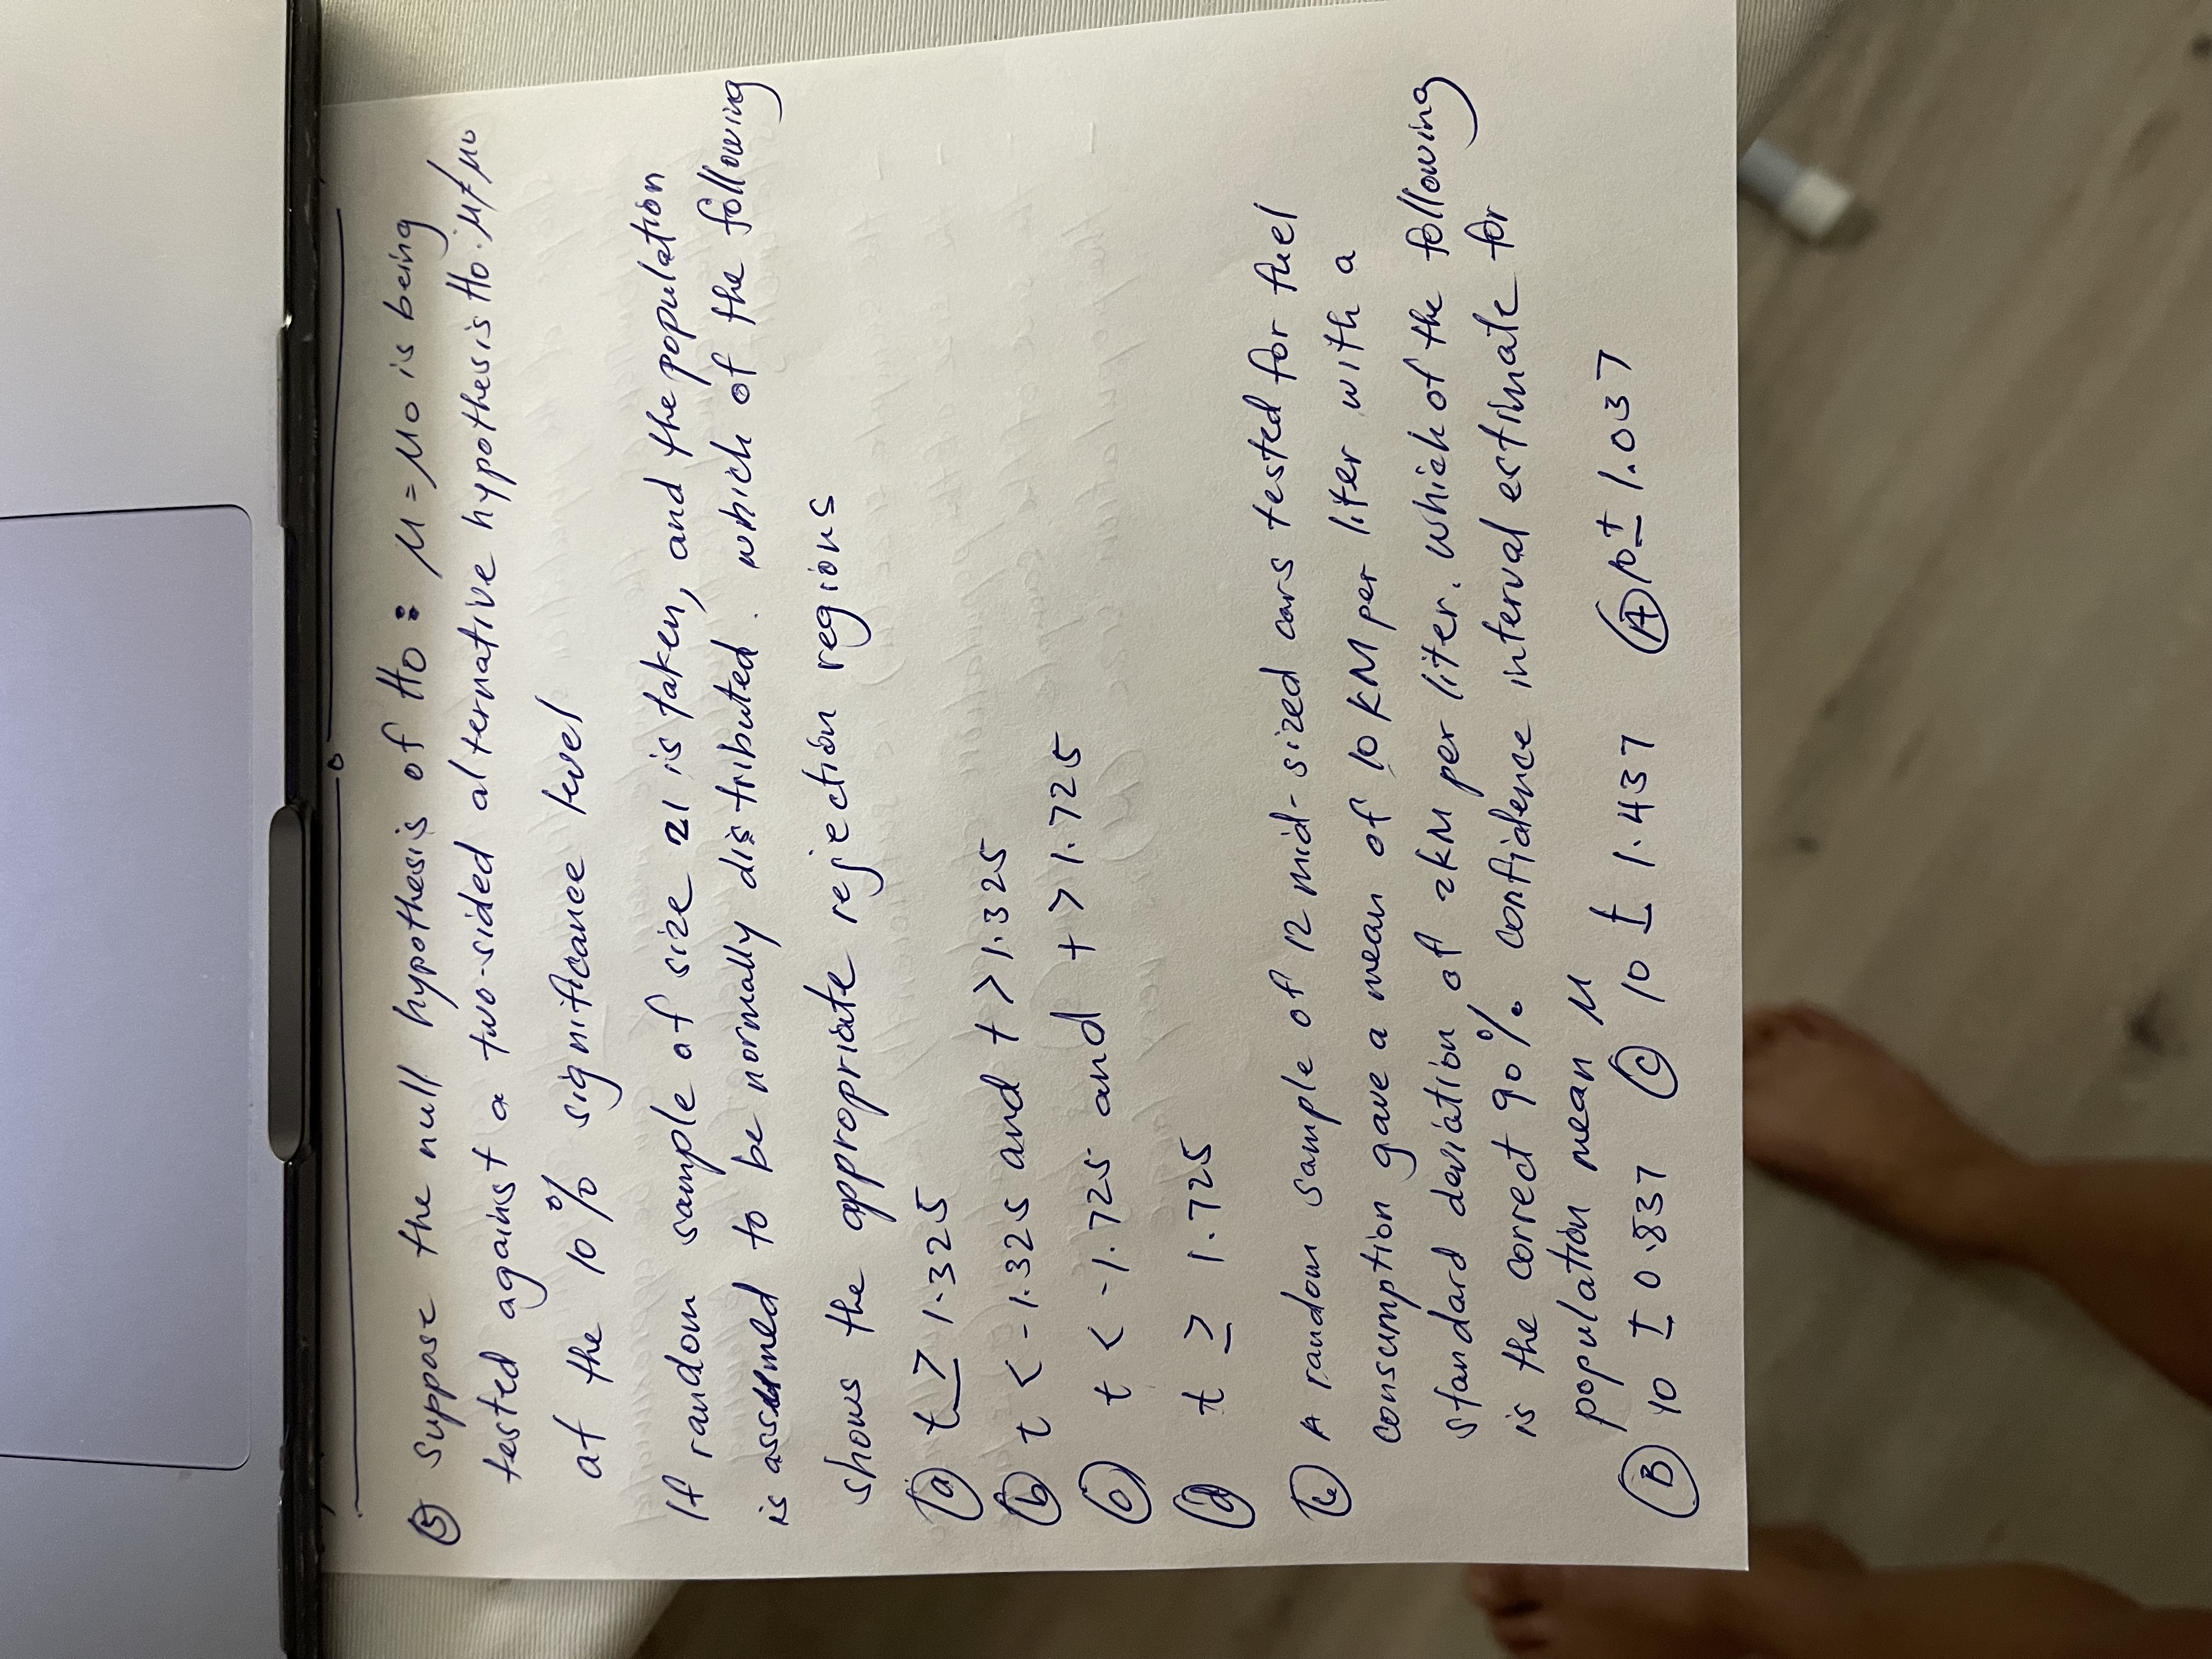 5 Suppose the null hypothesis of Ho: μ = μo is being
tested against a two-sided alternative hypothesis is Ho: μ≠μo
at the 10% significance level
If random sample of size 21 is taken, and the population
is assumed to be normally distributed. which of the following
shows the appropriate rejection regions
a t ≥ 1.325
b t < -1.325 and t > 1.325
c t < -1.725 and t > 1.725
d t ≥ 1.725
A random sample of 12 mid-sized cars tested for fuel
consumption gave a mean of 10 KM per liter with a
standard deviation of 2kM per liter. which of the following
is the correct 90% confidence interval estimate for
population mean μ
B 10 ± 0.837 C 10 ± 1.437 A 10 ± 1.037